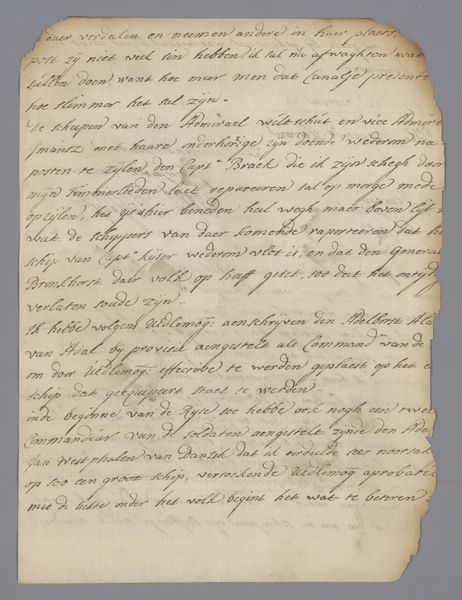 daer verdeelen en neemen andere in haer plaets,
post zij niet veel sin hebben, ik sal nu afwaghten wat
sullen doen, want hoe meer men dat Canalje presente
hoe slimmer het sal zijn.
De scheepen van den Admirael Wiltschut en vice Admir
smansz met haare onderhorige zijn doende wederom na
posten te zeijlen, den Captn Brack die ik zijn schegh door
mijn timmerlieden laet repareeren sal op morge mede
opzijlen, het ijs hier beneden heel wegh maer boven
wat de schippers van daer komende raporteeren dat h
schip van Captn Kijser wederom vlot is, en dat den Genera
Bronkhorst daer volk op heeft geset, soo doet het ontijd
verlaten soude zijn.
Ik hebbe volgens UEdlemog: aenschrijven den Adelborst Al
van Asal bij provisie aengestelt als Command van de
om door UEdlemog: effective te werden geplaest op het
schip dat geequipeert staet te werden
inde beginne van de Ryse soo hebbe ook nogh een twee
Commandeur van de soldaten aengestelt zijnde den Ade
Jan Westphalen van Dansik dat ik oordeelde seer noorsak
op soo een groot schip, versoekende UEdlemog aprobatie
met de siekte onder het volk begint het wat te beteren